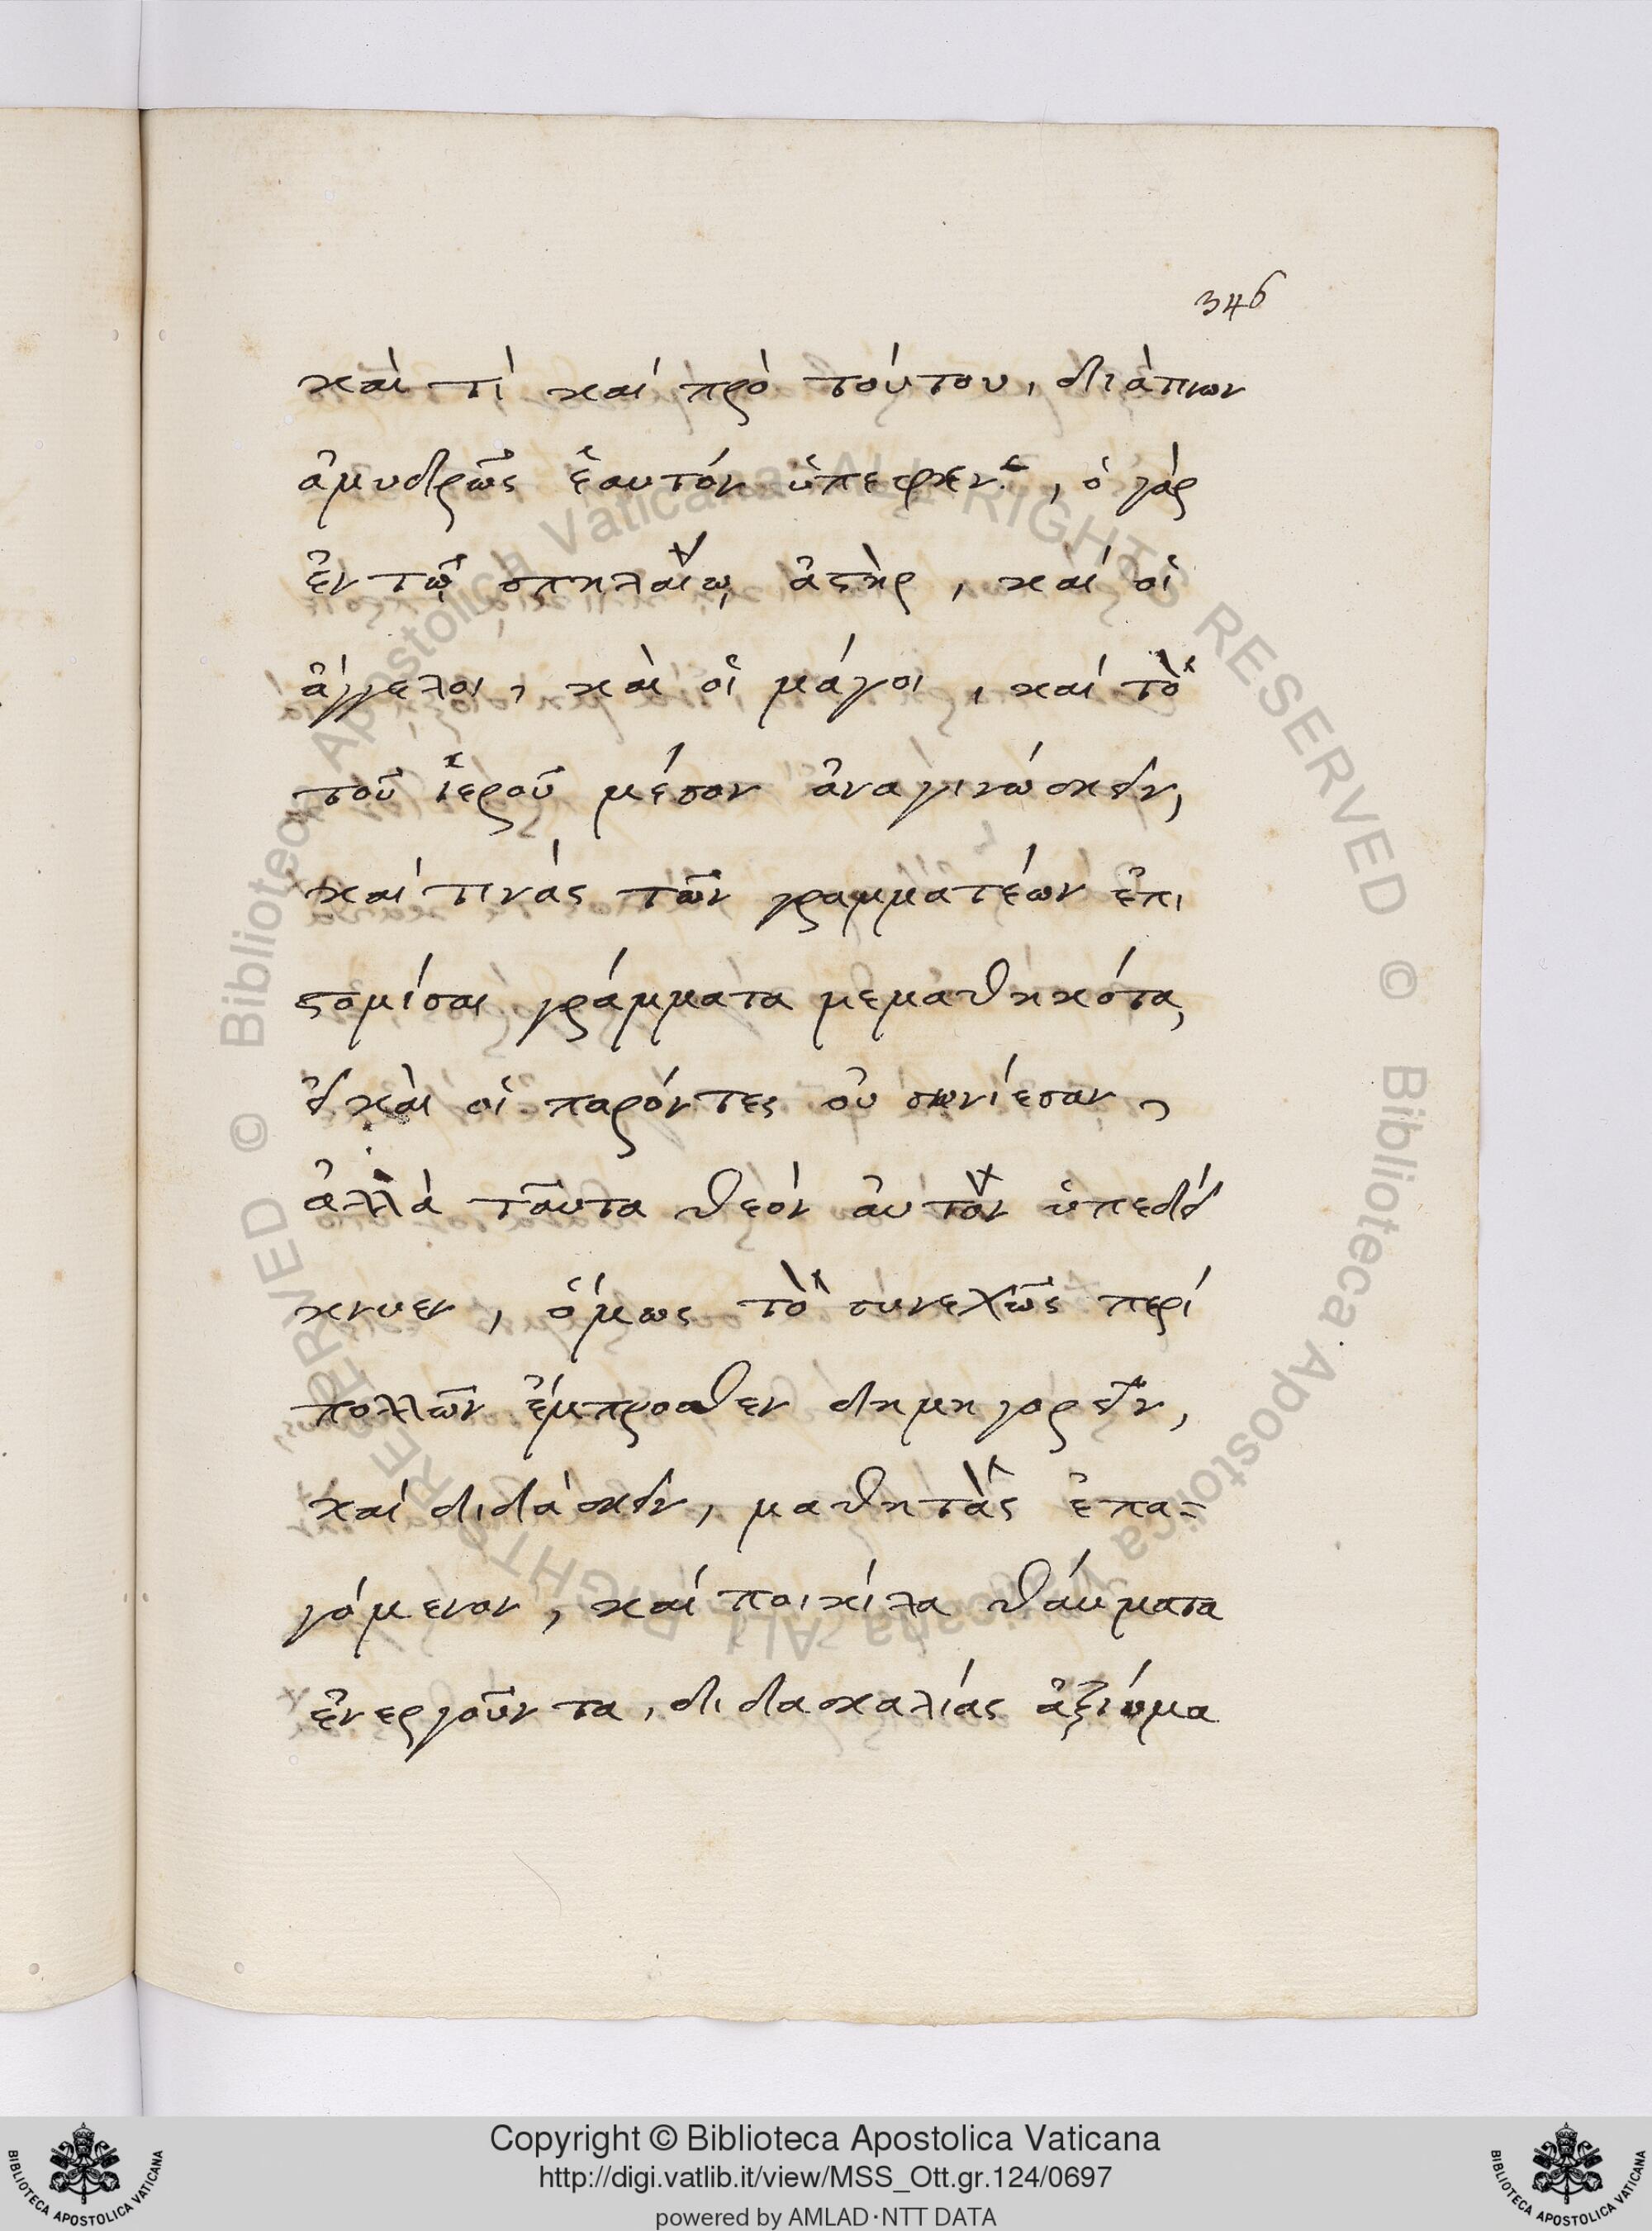 346
καὶ τὶ καί πρὸ τούτου, διάτινων
ἀμυδρῶς ἑαυτόν ὑπέφηνε, ὁ γάρ
ἐν τῷ σπηλαίῳ ἀστήρ, καί οἱ
ἄγγελοι, καὶ οἱ μάγοι, καί τὸ
τοῦ ἱεροῦ μέσον ἀναγινώσκειν,
καί τινάς τῶν γραμματέων ἐπι
στομίσαι γράμματα μεμαθηκότα,
εἰ καὶ οἱ παρόντες οὐ συνίεσαν,
ἀλλά ταῦτα θεόν αὐτὸν ὑπεδεί
κνυεν, ὅμως τὸ συνεχῶς περί
πολλῶν ἔμπροσθεν δημηγορεῖν,
καί διδάσκειν, μαθητὰς ἐπα=
γόμενον, καί ποικίλα θαύματα
ἐνεργοῦντα, διδασκαλίας ἀξίωμα
© Biblioteca Apostolica Vaticana ALL RIGHTS RESERVED © Biblioteca Apostolica Vaticana ALL RIGHTS RESERVED
Copyright © Biblioteca Apostolica Vaticana
http://digi.vatlib.it/view/MSS_Ott.gr.124/0697
powered by AMLAD·NTT DATA
BIBLIOTECA APOSTOLICA VATICANA
BIBLIOTECA APOSTOLICA VATICANA